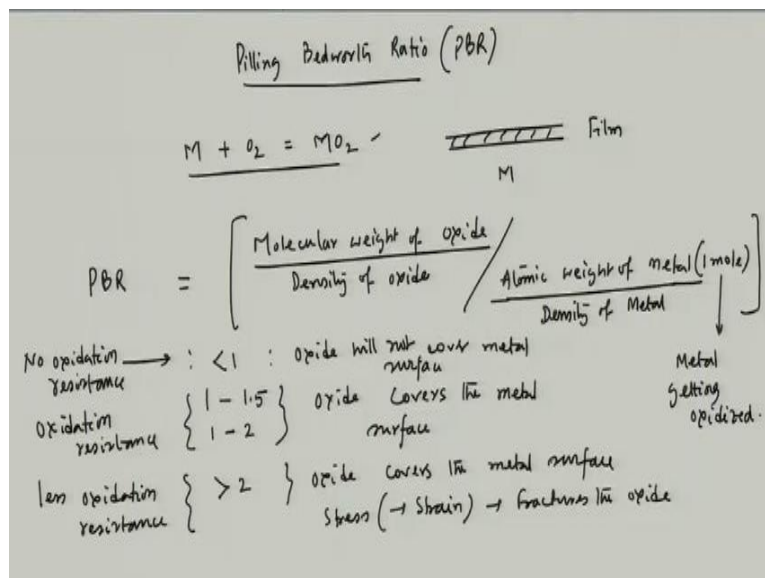 Pilling Bedworth Ratio (PBR)
M + O2 = MO2
Film
M
PBR = [ Molecular weight of oxide / Density of oxide / Atomic weight of metal (1 mole) / Density of Metal ]
No oxidation resistance → : <1 : oxide will not cover metal surface
Metal getting oxidized.
oxidation resistance { 1 - 1.5
1 - 2 } oxide covers the metal surface
less oxidation resistance { >2 } oxide covers the metal surface
Stress (→ Strain) → fractures the oxide